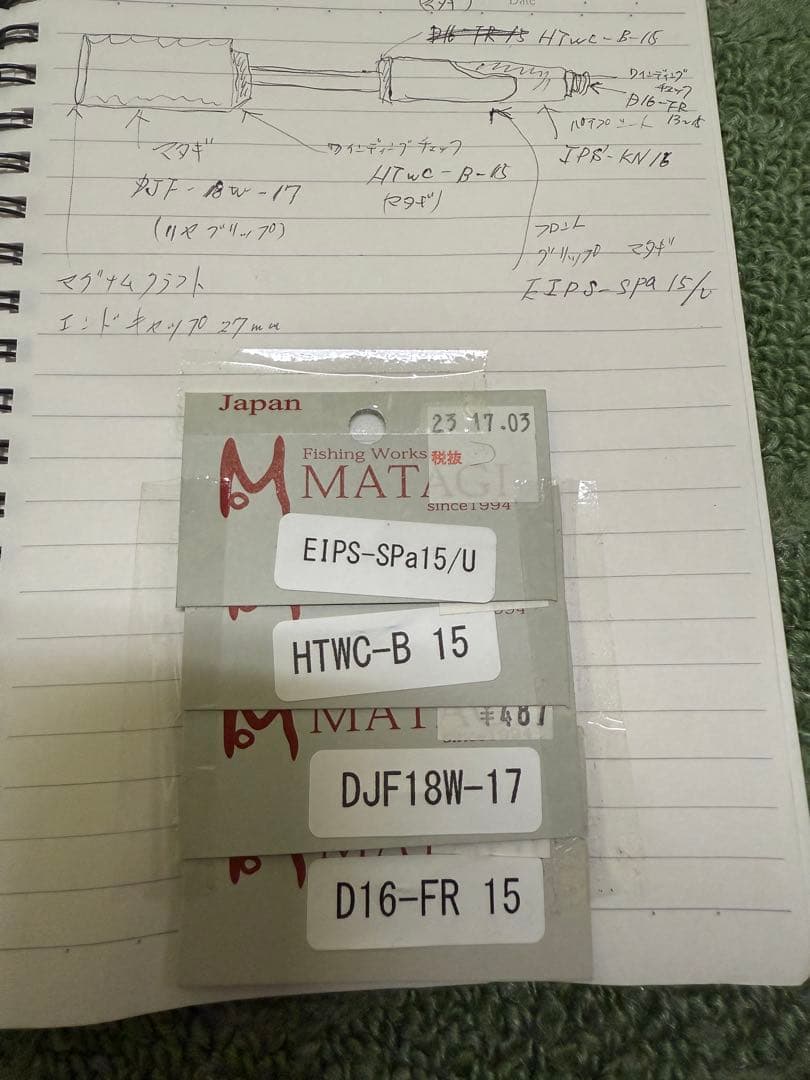 (マタギ)
Date
D16-FR 15 HTWC-B-15
ワインディング
チェック
D16-FR
13~15
パイプシート
IPS-KN16
マタギ
DJF-18W-17
(リヤグリップ)
ワインディングチェック
HTWC-B-15
(マタギ)
フロント
グリップ マタギ
EIPS-SPa 15/U
マグナムクラフト
エンドキャップ 27mm
Japan
23.17.03
税抜
Fishing Works
MATAGI
since1994
EIPS-SPa15/U
HTWC-B 15
¥487
MATA
DJF18W-17
D16-FR 15